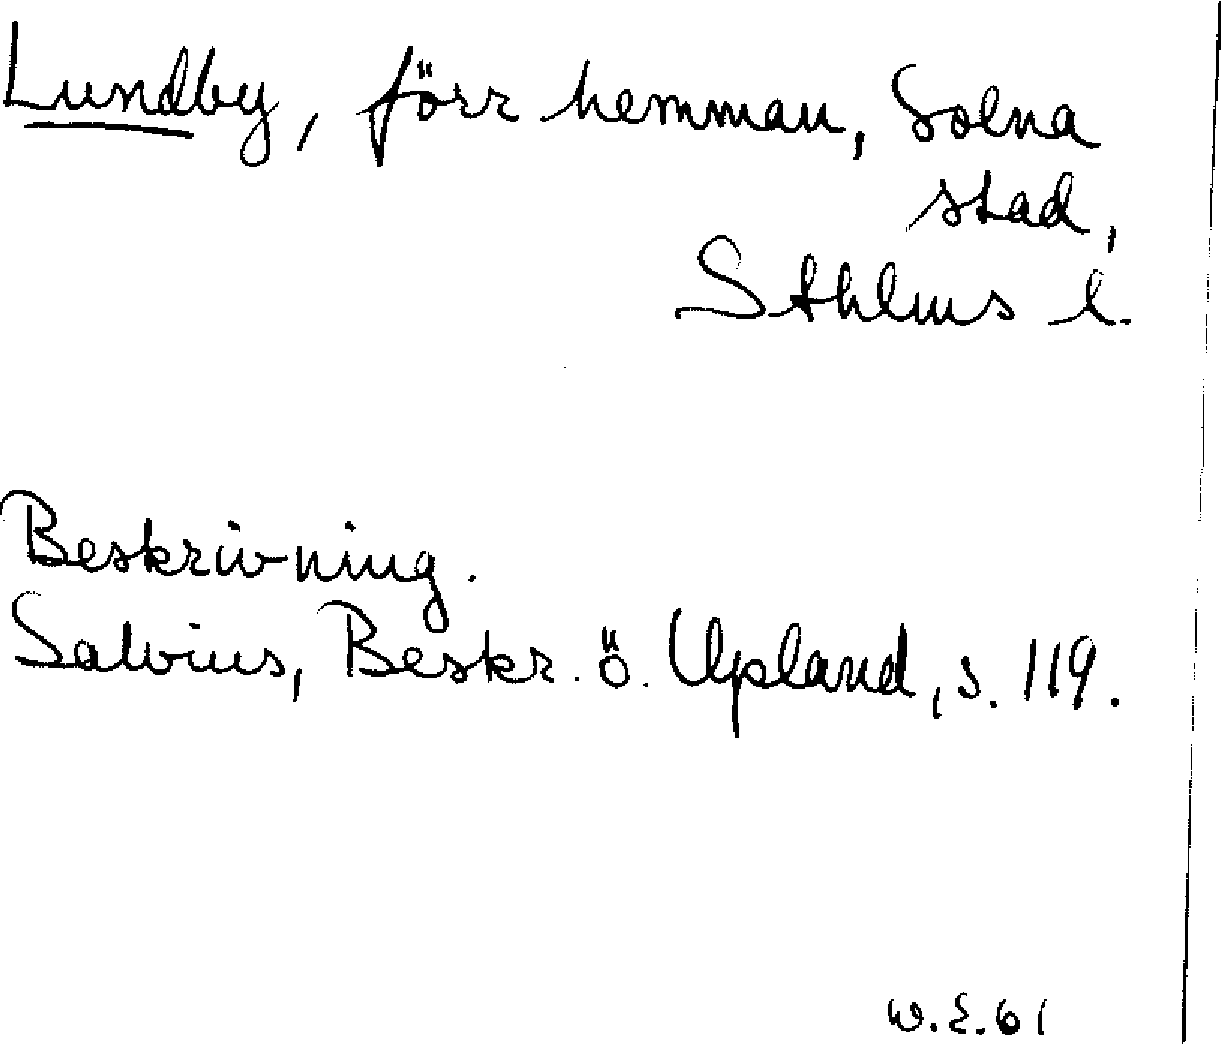 Lundby, förr hemman, Solna
stad,
Sthlms l.
Beskrivning.
Salvius, Beskr. ö. Upland, s. 119.
W.E.61